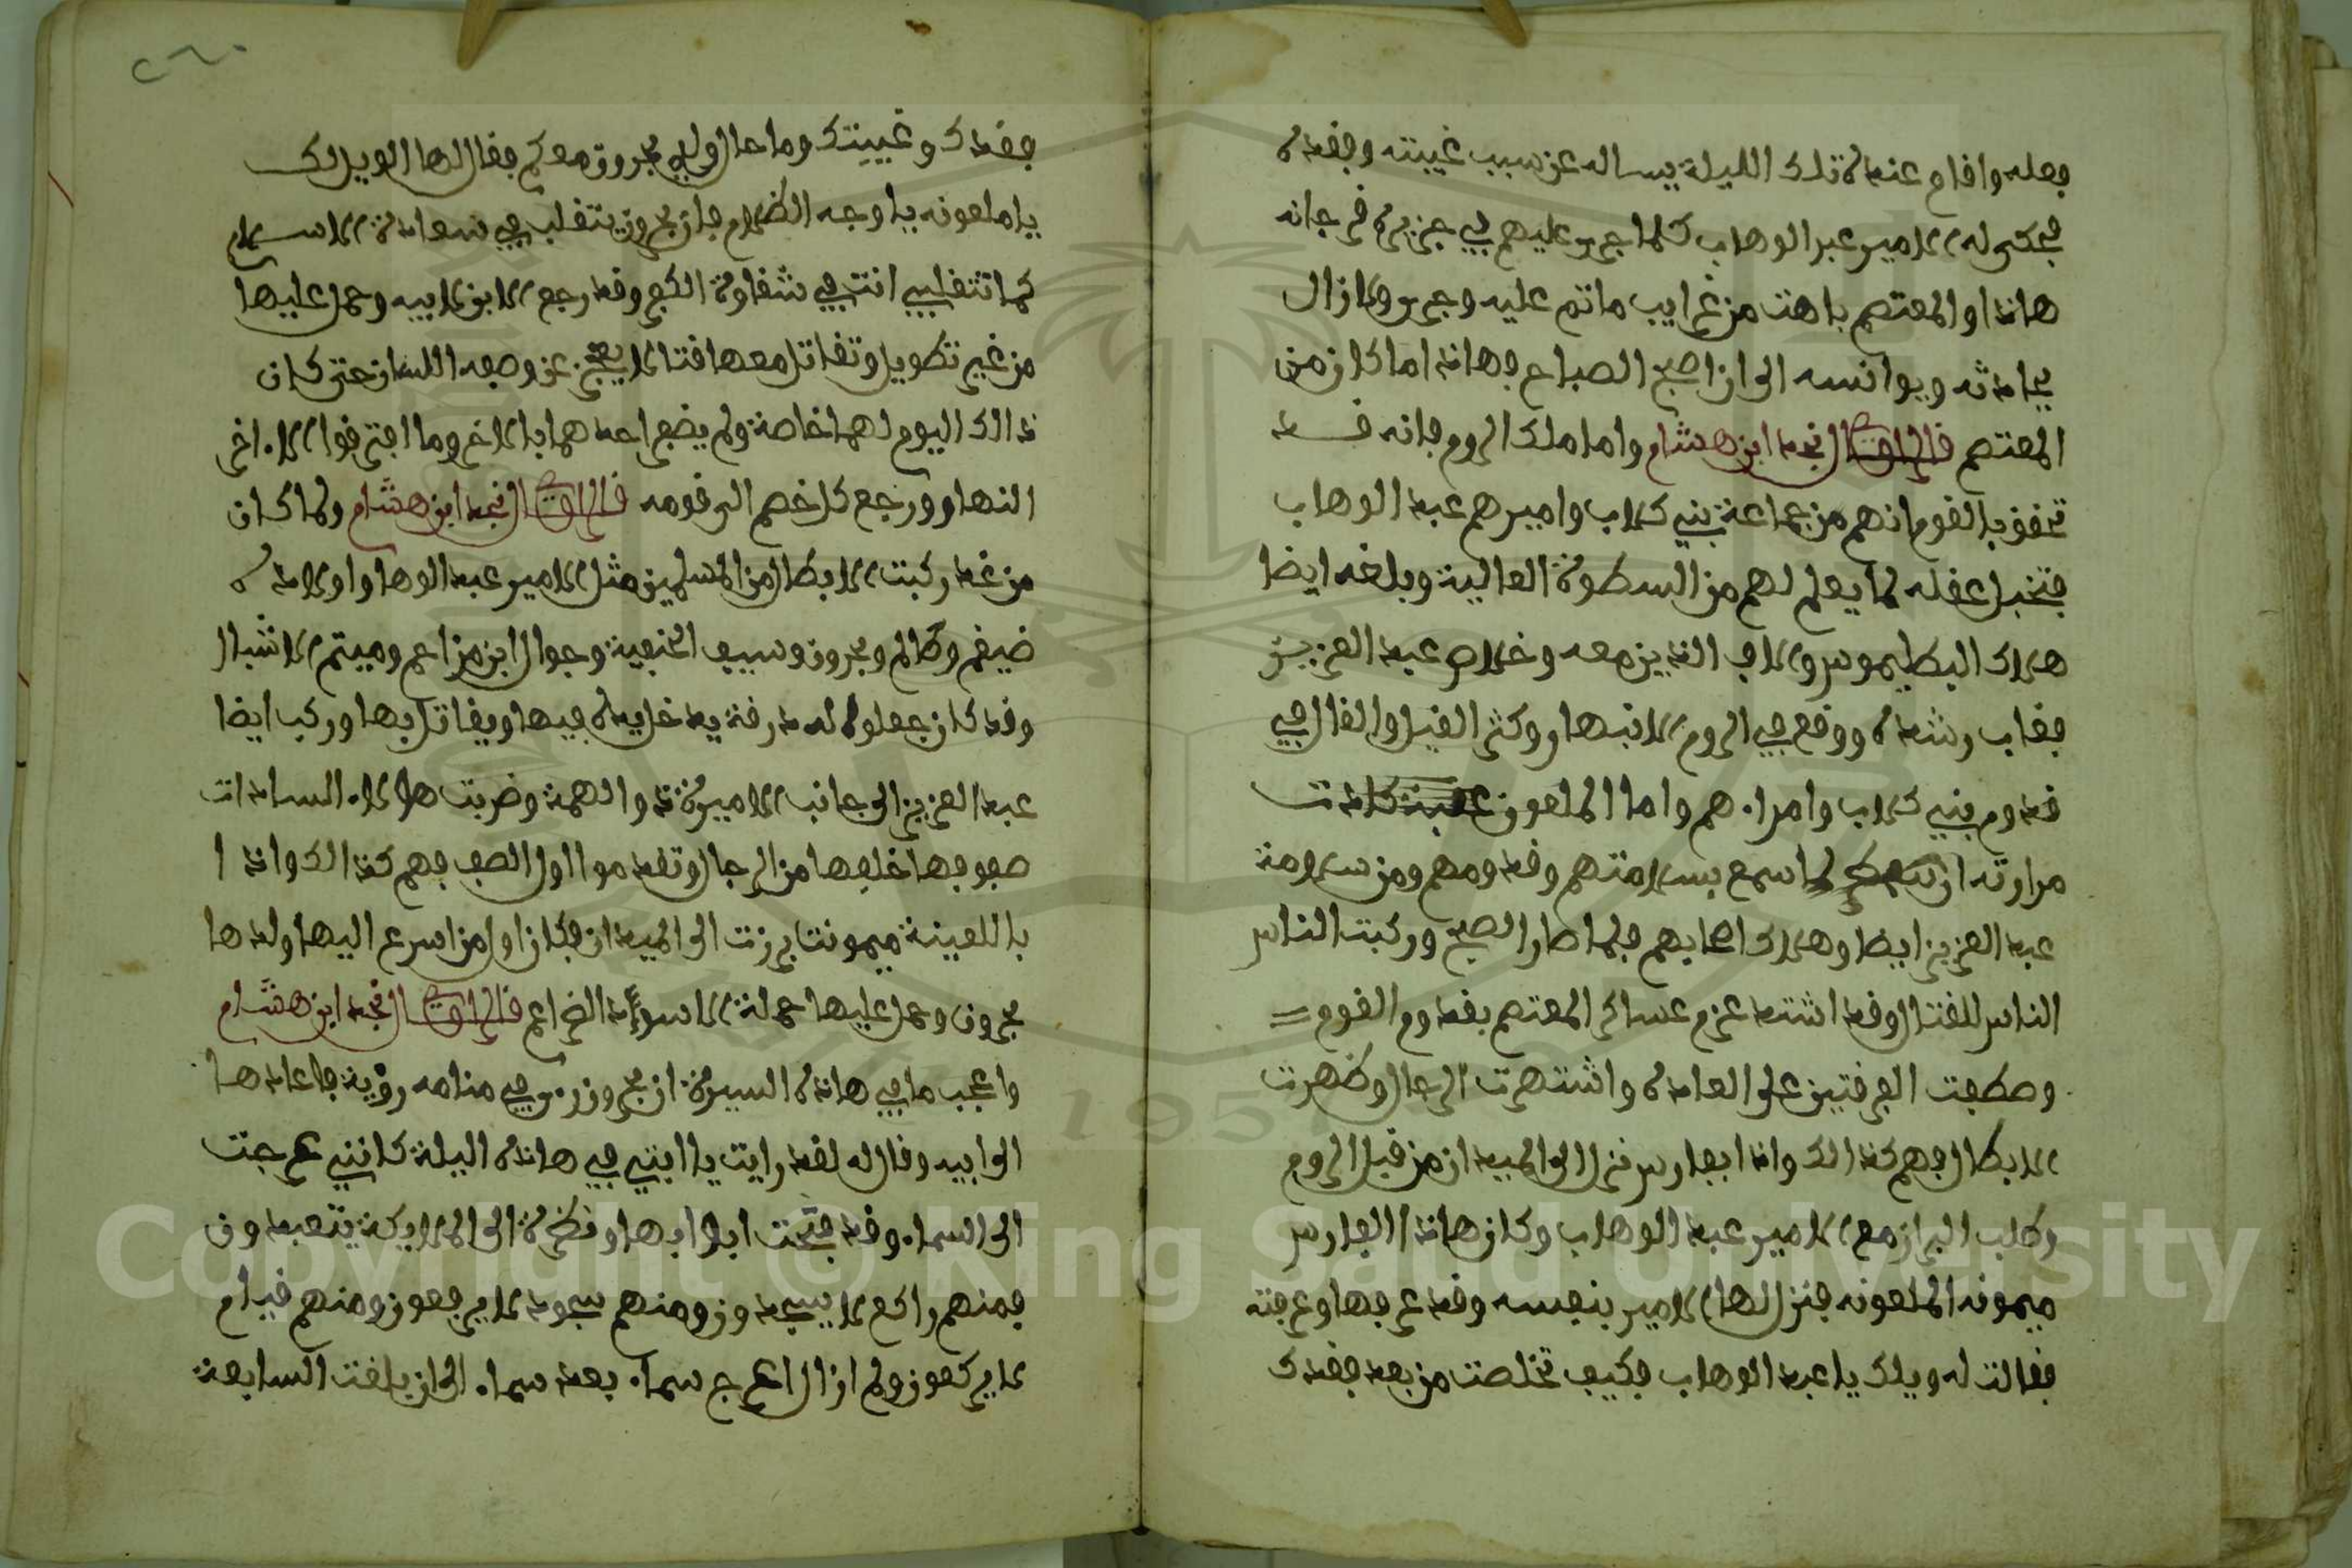 فعله واقام عنده تلك الليلة يساله عن سبب غيبته وفقده
فحكى له الامير عبد الوهاب كلما جرى عليهم في جزيرة فرجانه
هاذا والمعتصم باهت من غرايب ماتم عليه وجرى ولا زال
يحادثه ويوانسه الى ان اصبح الصباح فهاذا ما كان من
المعتصم قال الراوي نجد ابن هشام واما ملك الروم فانه قد
تحقق بالقوم انهم من جماعة بني كلاب واميرهم عبد الوهاب
فتخبل عقله لما يعلم لهم من السطوة العالية وبلغه ايضا
هلاك البطليموس والالاف الذين معه وخلاص عبد العزيز
فغاب رشده ووقع في الروم الانبهار وكثر القيل والقال في
قدوم بني كلاب وامراءهم واما الملعون عقبة كادت
مرارته ان تنفطر لما سمع بسلامتهم وقدومهم ومن سلامة
عبد العزيز ايضا وهلاك اصحابهم فلما صار الصبح وركبت الناس
الناس للقتال وقد اشتد عزم عساكر المعتصم بقدوم القوم
وصطفت الفرقتين على العاده واشتهرت الرجال وظهرت
الابطال فهم كذالك واذا بفارس نزل الى الميدان من قبل الروم
وطلب البراز مع الامير عبد الوهاب وكان هاذا الفارس
ميمونه الملعونه فنزل لها الامير بنفسه وقد عرفها وعرفته
فقالت له ويلك يا عبد الوهاب فكيف تخلصت من بعد فقدك
فقدك وغيبتك وما حال ولدي بحرون معكم فقال لها الويل لك
يا ملعونه يا وجه الظلام فان بحرون يتقلب في سعادة الاسلام
كما تتقلبي انتي في شقاوة الكفر وقد رجع الابن لابيه وحمل عليها
من غير تطويل وتقاتل معها قتالا يعجز عن وصفه اللسان حتى كان
ذالك اليوم لهما خاصة ولم يضفر احدهما بالاخر وما افترقوا الا اخر
النهار ورجع كل خصم الى قومه قال الراوي نجد ابن هشام ولما كان
من غد ركبت الابطال من المسلمين مثل الامير عبد الوهاب واولاده
ضيغم وظالم وبحرون وسيف الحنفية وجوال ابن مزاحم وميتم الاشبال
وقد كان جعلوا له درقة يدخل يده فيها ويقاتل بها وركب ايضا
عبد العزيز الى جانب الاميرة ذو الهمة وضربت هؤلاء السادات
صفوفها خلفها من الرجال وتقدموا اول الصف فهم كذالك واذا
باللعينة ميمونت برزت الى الميدان فكان اول من اسرع اليها ولدها
بحرون وحمل عليها حملة الاسود الضراغم قال الراوي نجد ابن هشام
واعجب ما في هاذه السيرة ان بحرون رءى في منامه رؤية فاعادها
الى ابيه وقال له لقد رايت يا ابتي في هاذه اليلة كانني عرجت
الى السماء وقد فتحت ابوابها ونظرة الى الملايكة يتعبدون
فمنهم راكع لا يسجدون ومنهم سجود لا يرفعون ومنهم قيام
لا يركعون ولم ازال اعرج سماء بعد سماء الى ان بلغت السابعة